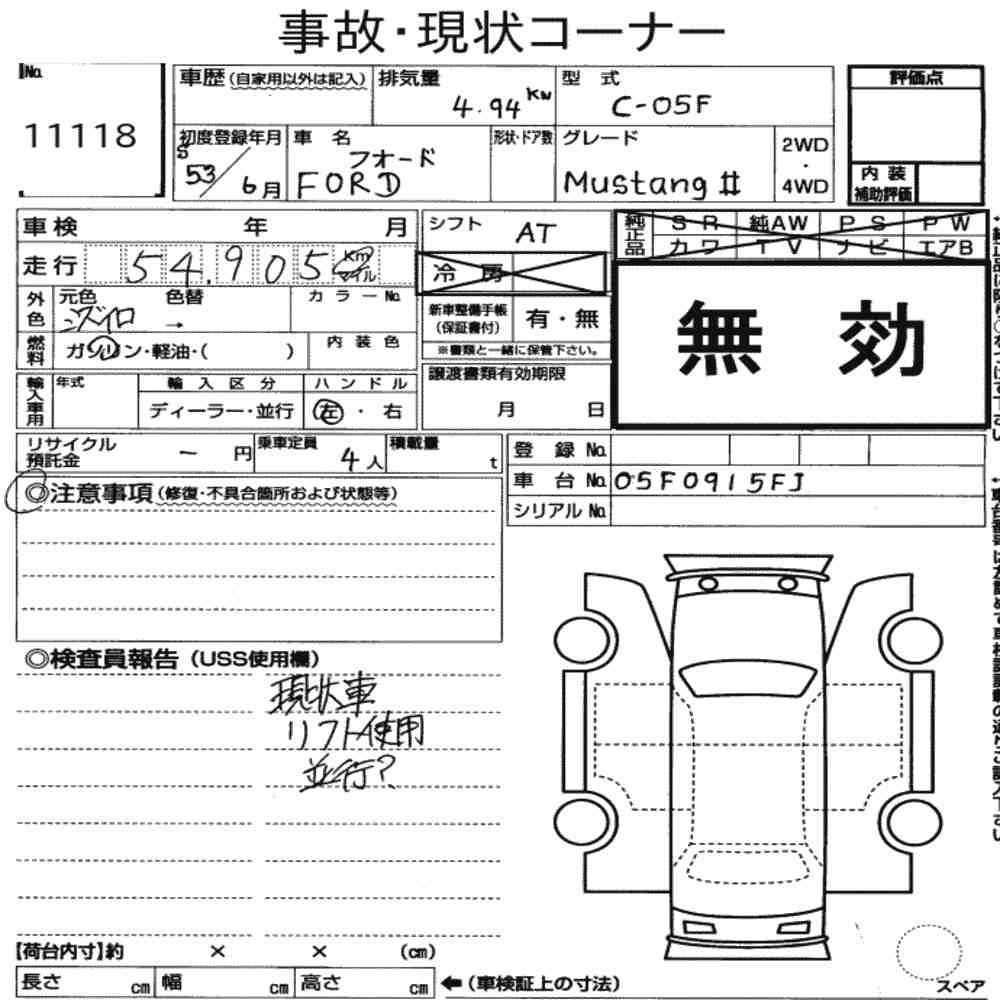 事故・現状コーナー
No.
11118
車歴(自家用以外は記入)
排気量
4.94 KW
型 式
C-05F
評価点
初度登録年月
S
53/6月
車 名
フォード
FORD
形状・ドア数
グレード
Mustang II
2WD
・
4WD
内 装
補助評価
車検 年 月
シフト AT
純正品
SR 純AW PS PW
カワ TV ナビ エアB
走行 54,905 Km
マイル
冷 房
外色
元色 色替
ミズイロ →
カラーNo.
新車整備手帳
(保証書付)
有・無
※書類と一緒に保管下さい。
無 効
燃料
ガソリン・軽油・( )
内 装 色
輸入車用
年式
輸 入 区 分
ディーラー・並行
ハ ン ド ル
左 ・ 右
譲渡書類有効期限
月 日
リサイクル
預託金
ー 円
乗車定員
4人
積載量
t
登 録 No.
車 台 No. 05F0915FJ
シリアル No.
◎注意事項(修復・不具合箇所および状態等)
◎検査員報告(USS使用欄)
現状車
リフト使用
並行?
【荷台内寸】約 × × (cm)
長さ cm 幅 cm 高さ cm
←(車検証上の寸法)
スペア